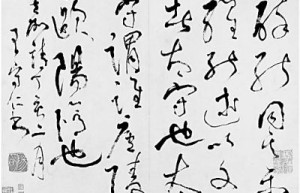 醉能同其樂
醒能述以文
者太守也太
守謂誰廬陵
歐陽脩也
嘉靖丁亥二月
王守仁書